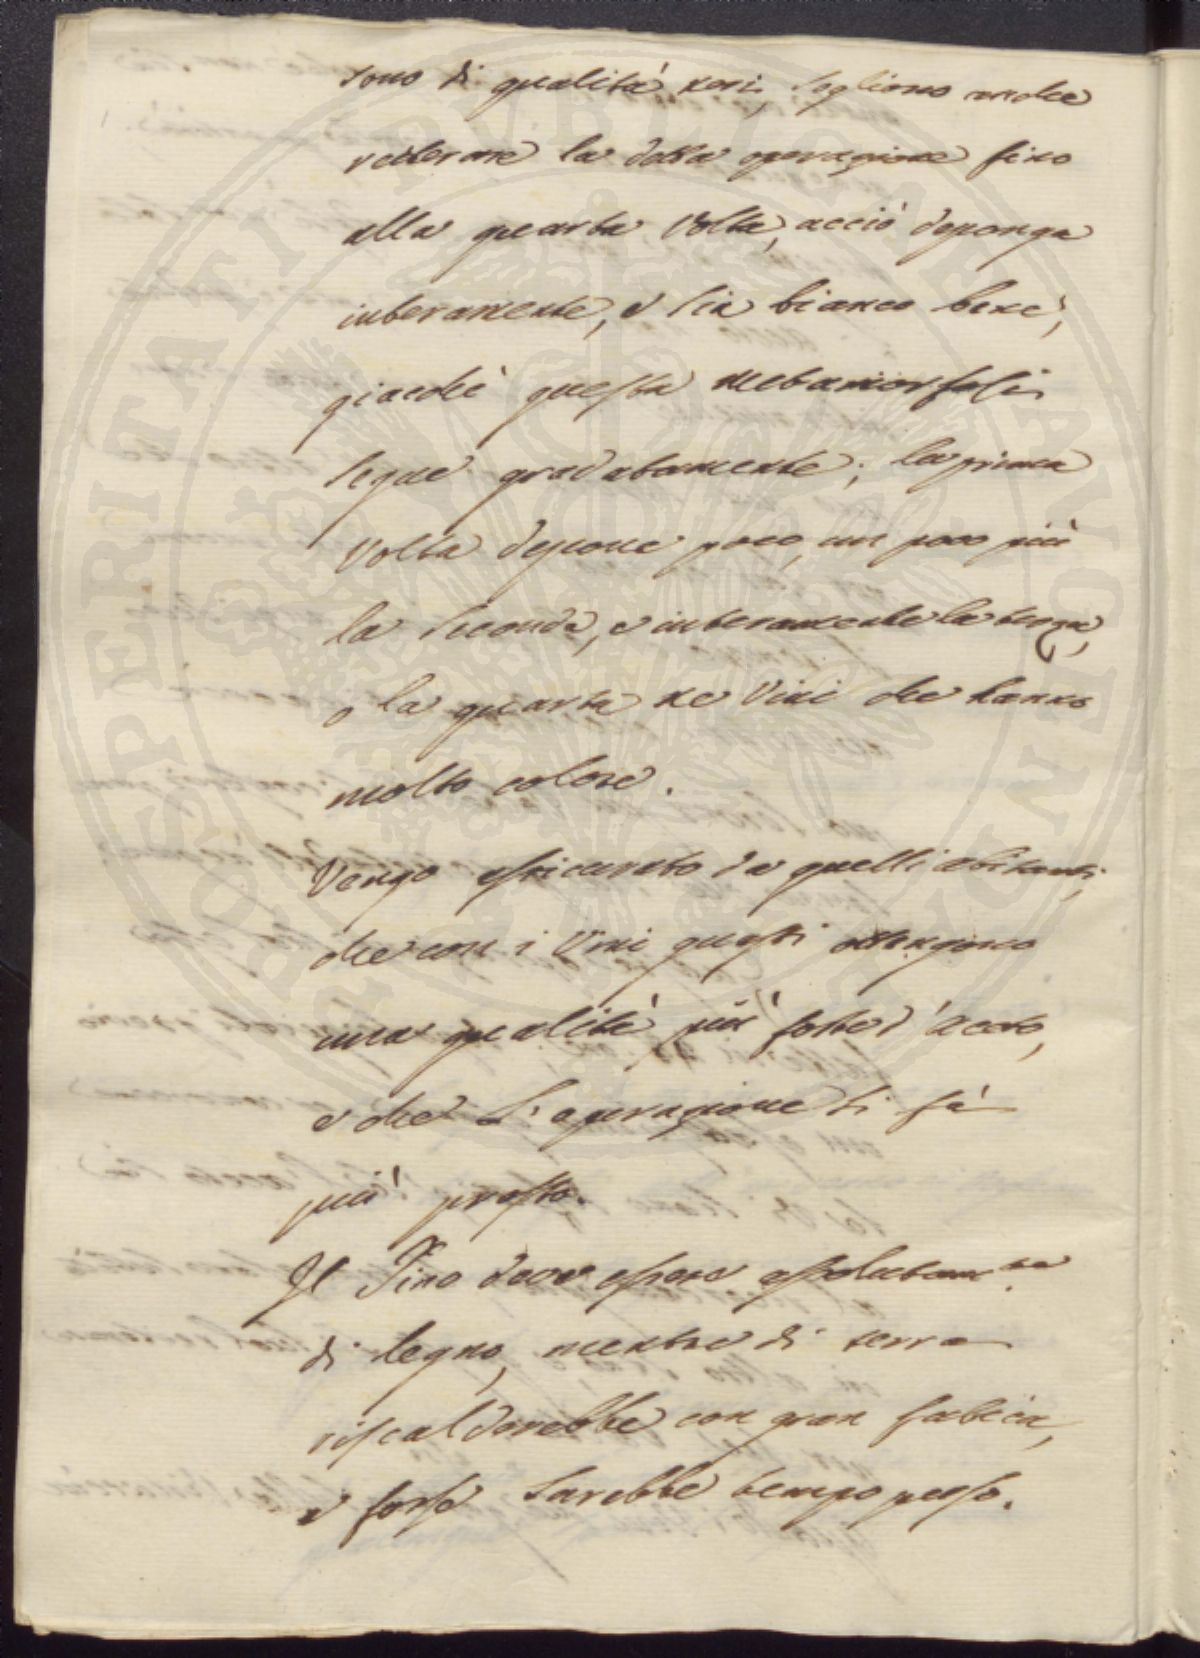 sono di qualità neri, sogliono anche
reiterare la detta operazione fino
alla quarta volta, acciò deponga
interamente, e sia bianco bene,
giacchè questa metamorfosi
segue gradatamente; la prima
volta depone poco, un poco più
la seconda, e interamente la terza,
o la quarta ne Vini che hanno
molto colore.
Vengo assicurato da quelli abitanti,
che con i Vini guasti ottengono
una qualità più forte d'aceto,
e che L'operazione si fà
più presto.
Il Tino deve essere assolutam.te
di legno, mentre di terra
riscalderebbe con gran fatica,
e forse sarebbe tempo perso.
PROSPERITATI PVBLICAE